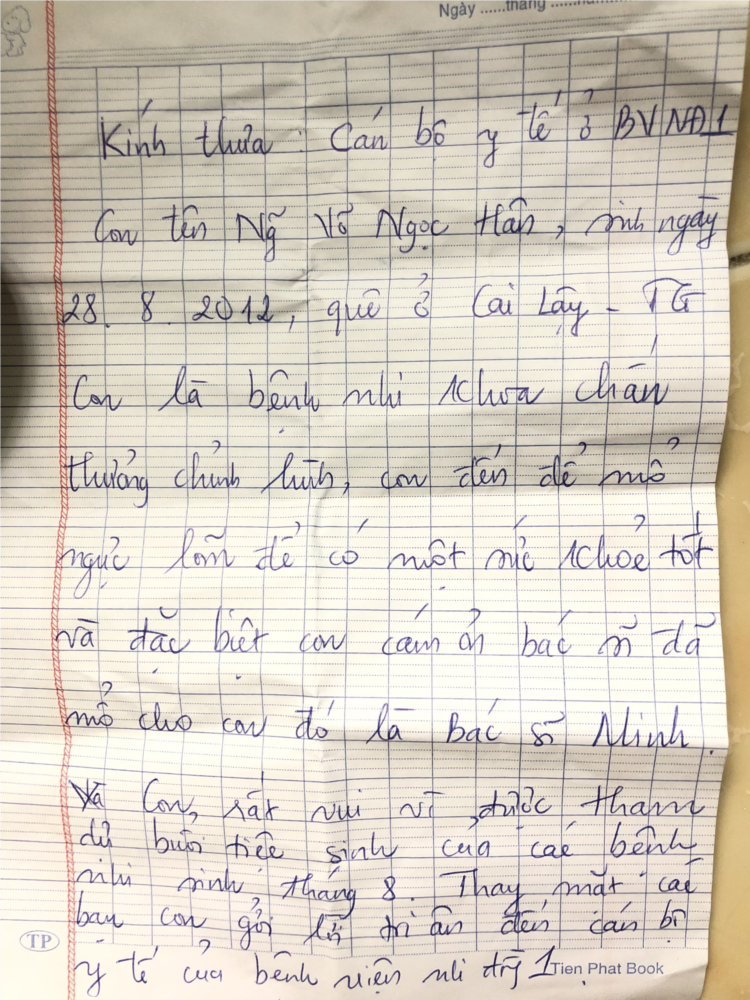 Ngày ......tháng ......
Kính thưa : Cán bộ y tế ở BVNĐ1
Con tên Ng̃ Võ Ngọc Hân, sinh ngày
28. 8. 2012, quê ở Cai Lậy - TG
Con là bệnh nhi khoa chấn
thưởng chỉnh hình, con đến để mổ
ngực lõm để có một sức khỏe tốt
và đặc biệt con cám ơn bác sĩ đã
mổ cho con đó là Bác sĩ Minh.
Và Con, rất vui vì được tham
dự buổi tiệc sinh của các bệnh
nhi sinh tháng 8. Thay mặt các
bạn con gởi lời tri ân đến cán bộ
y tế của bệnh viện nhi đồng 1
TP
Tien Phat Book